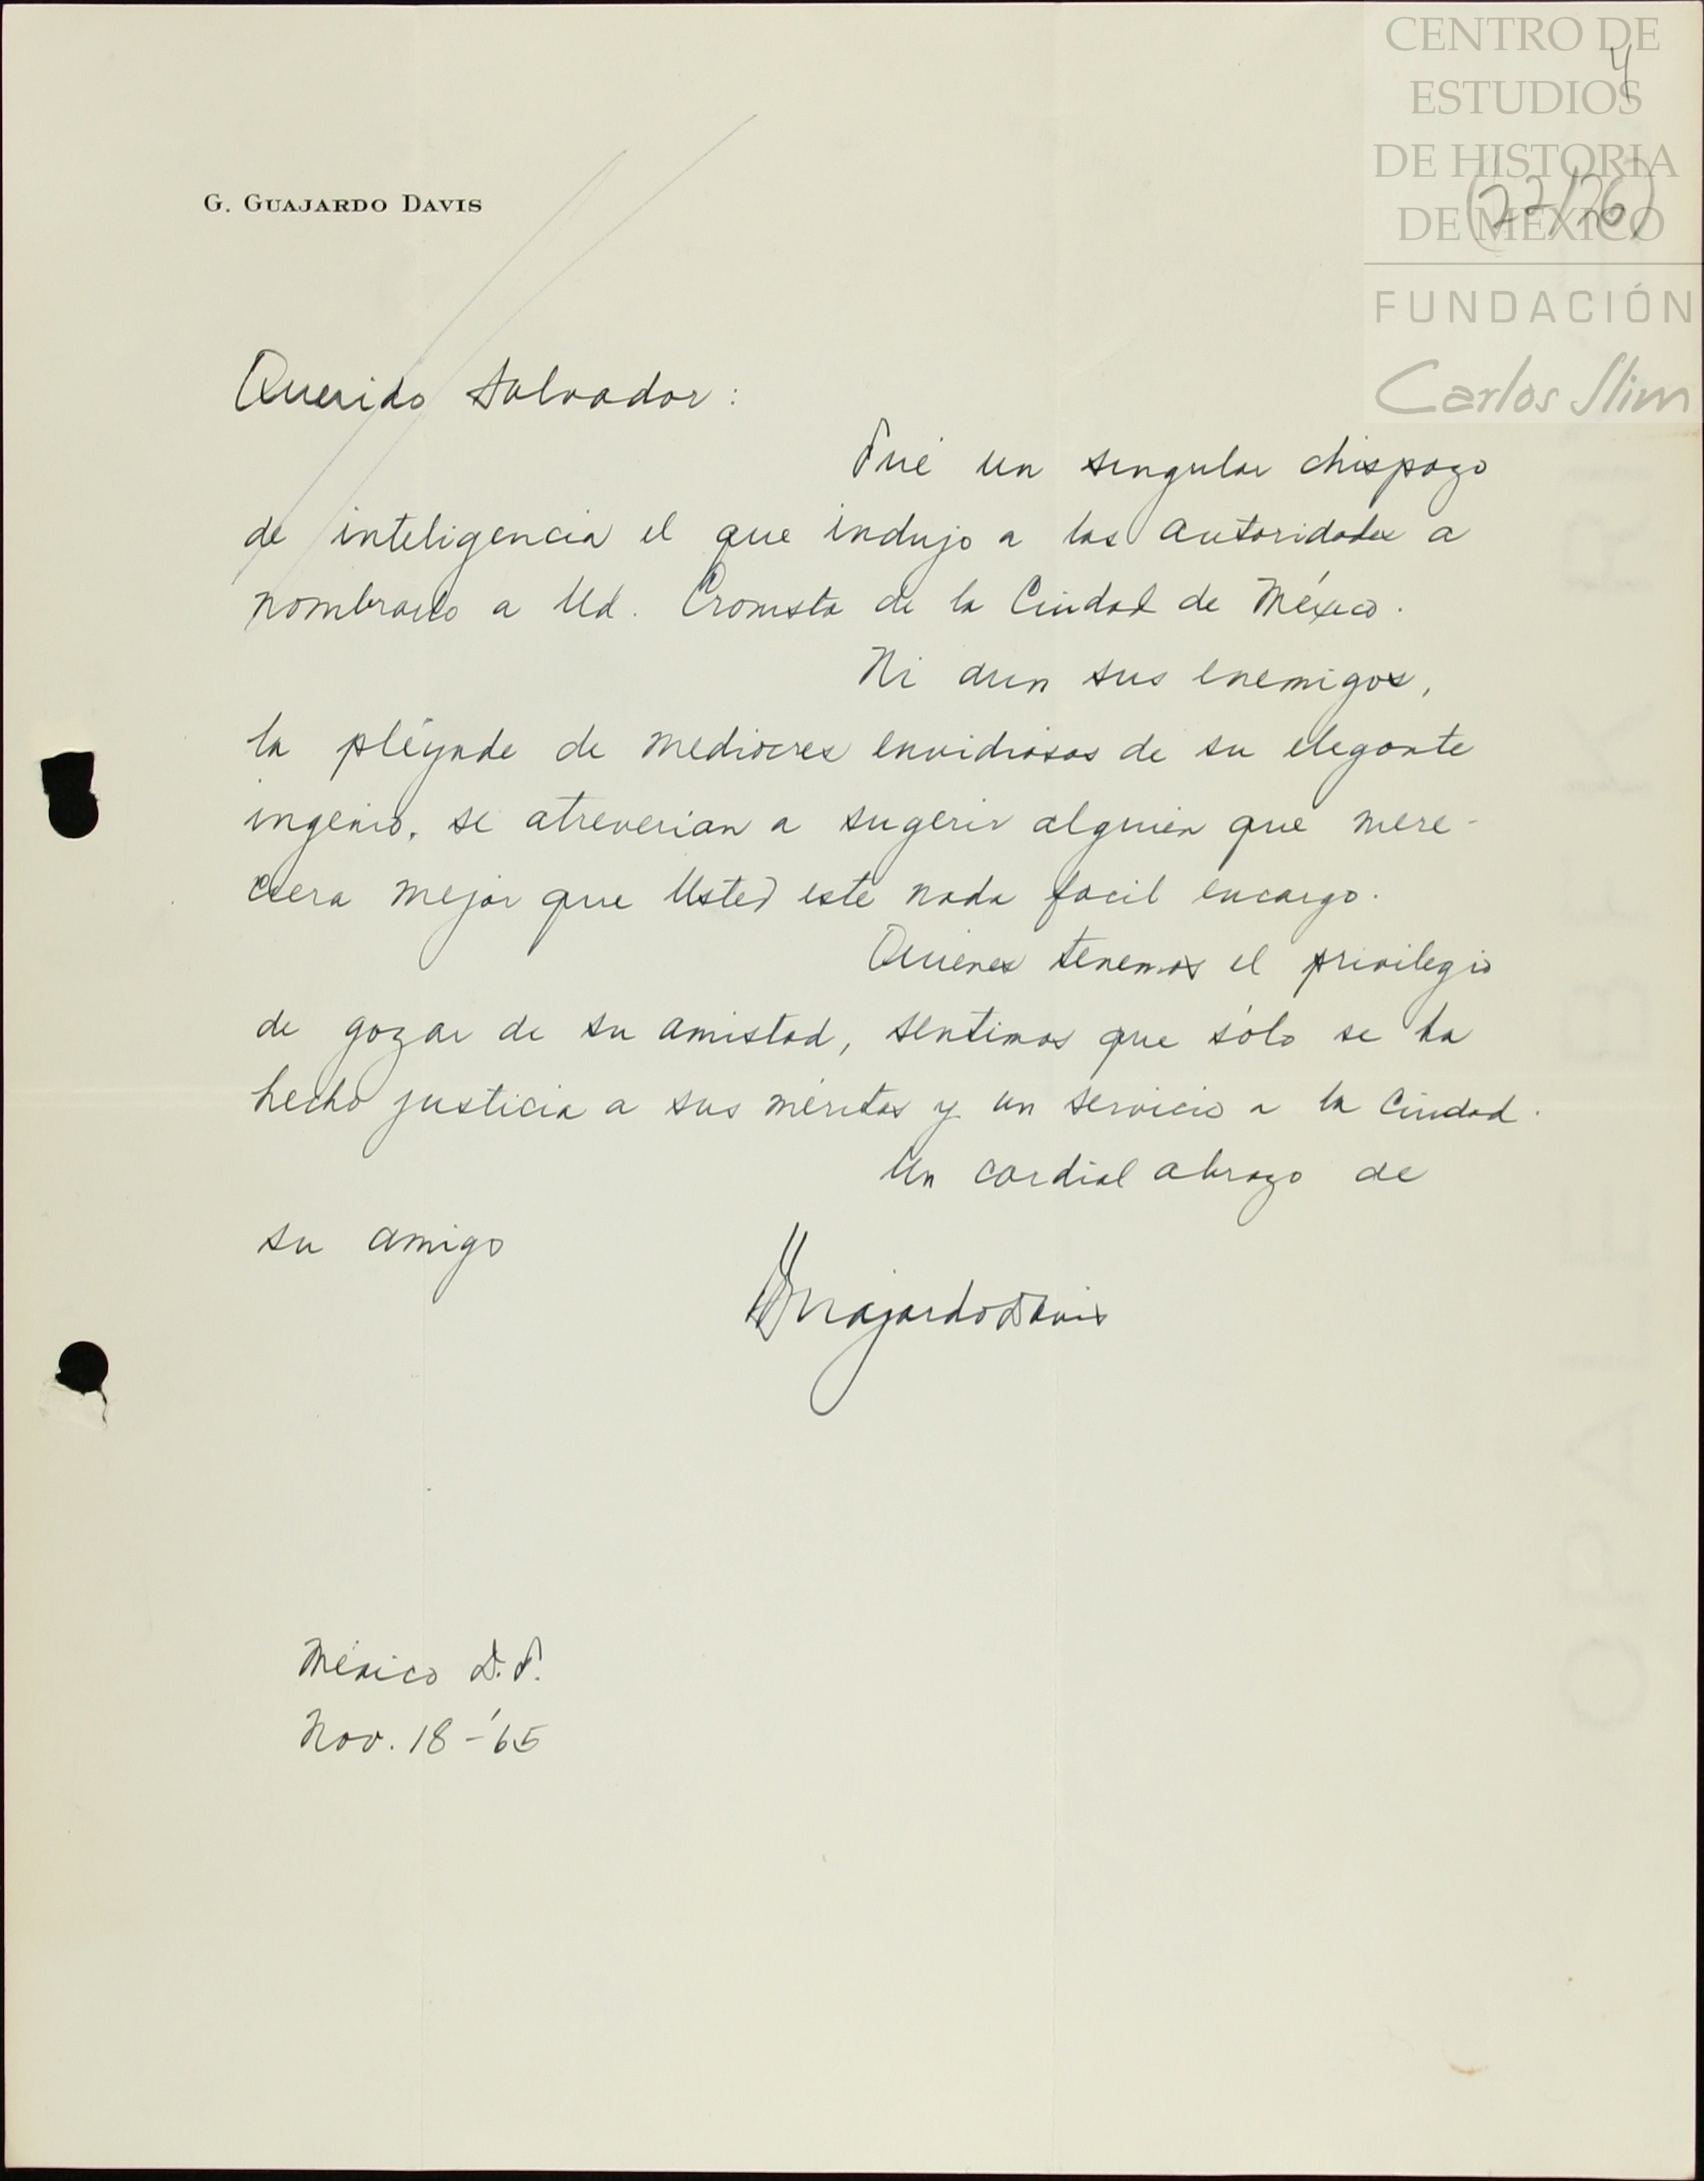 CENTRO DE
ESTUDIOS
DE HISTORIA
DE MÉXICO
FUNDACIÓN
Carlos Slim
4
(22/26)
G. GUAJARDO DAVIS
Querido Salvador:
Fué un singular chispazo
de inteligencia el que indujo a las autoridades a
nombrarlo a Ud. Cronista de la Ciudad de México.
Ni aun sus enemigos,
la pléyade de mediocres envidiosos de su elegante
ingenio, se atreverian a sugerir alguien que mere-
ciera mejor que Usted este nada facil encargo.
Quienes tenemos el privilegio
de gozar de su amistad, sentimos que sólo se ha
hecho justicia a sus méritos y un servicio a la Ciudad.
Un cordial abrazo de
su amigo
GuajardoDavis
México D.F.
Nov. 18-'65